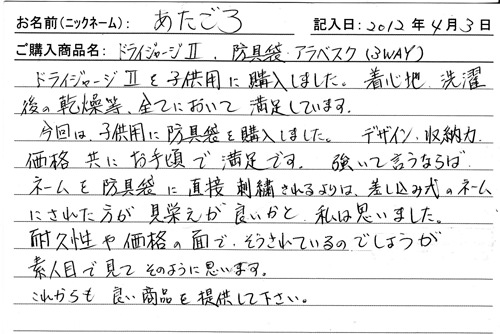 お名前(ニックネーム): あたごろ 記入日: 2012年4月3日
ご購入商品名: ドライジャージⅡ、防具袋・アラベスク(3WAY)
ドライジャージⅡを子供用に購入しました。着心地、洗濯
後の乾燥等、全てにおいて満足しています。
今回は、子供用に防具袋を購入しました。デザイン、収納力、
価格共にお手頃で満足です。強いて言うならば
ネームを防具袋に直接刺繍されるよりは、差し込み式のネーム
にされた方が見栄えが良いかと私は思いました。
耐久性や価格の面で、そうされているのでしょうが
素人目で見てそのように思います。
これからも良い商品を提供して下さい。